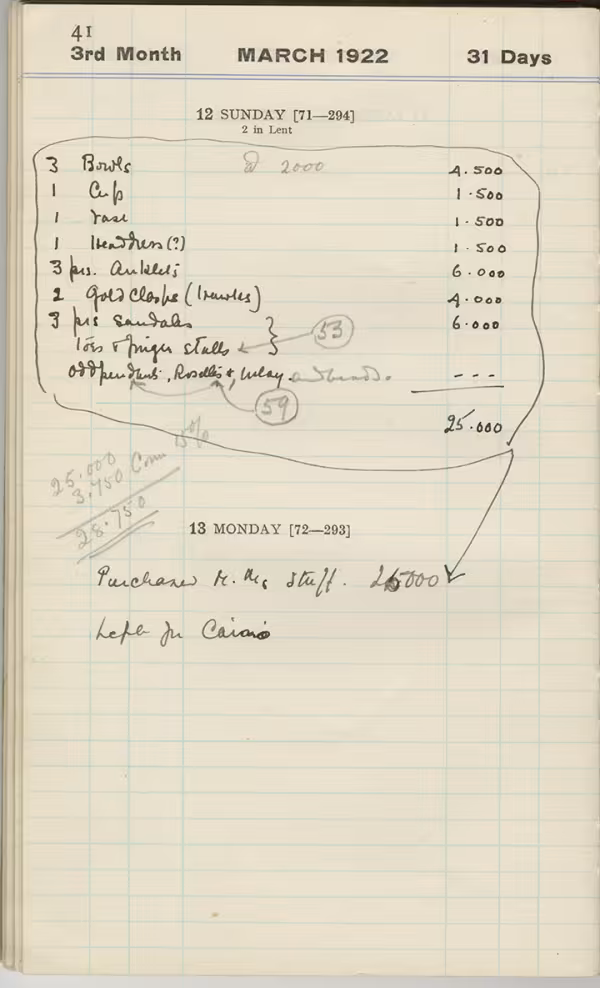 41
3rd Month MARCH 1922 31 Days
12 SUNDAY [71—294]
2 in Lent
3 Bowls @ 2000 4.500
1 Cup 1.500
1 Vase 1.500
1 Headdress (?) 1.500
3 prs. Anklets 6.000
2 Gold Clasps ( ) 4.000
3 prs sandals 6.000
toes & finger stalls 53
Odd pendants, Rosettes &, Inlay and beads. - - -
59
25.000
25.000
3.750 Comm 15%
28.750
13 MONDAY [72—293]
Purchased stuff. 25000
Left for Cairo